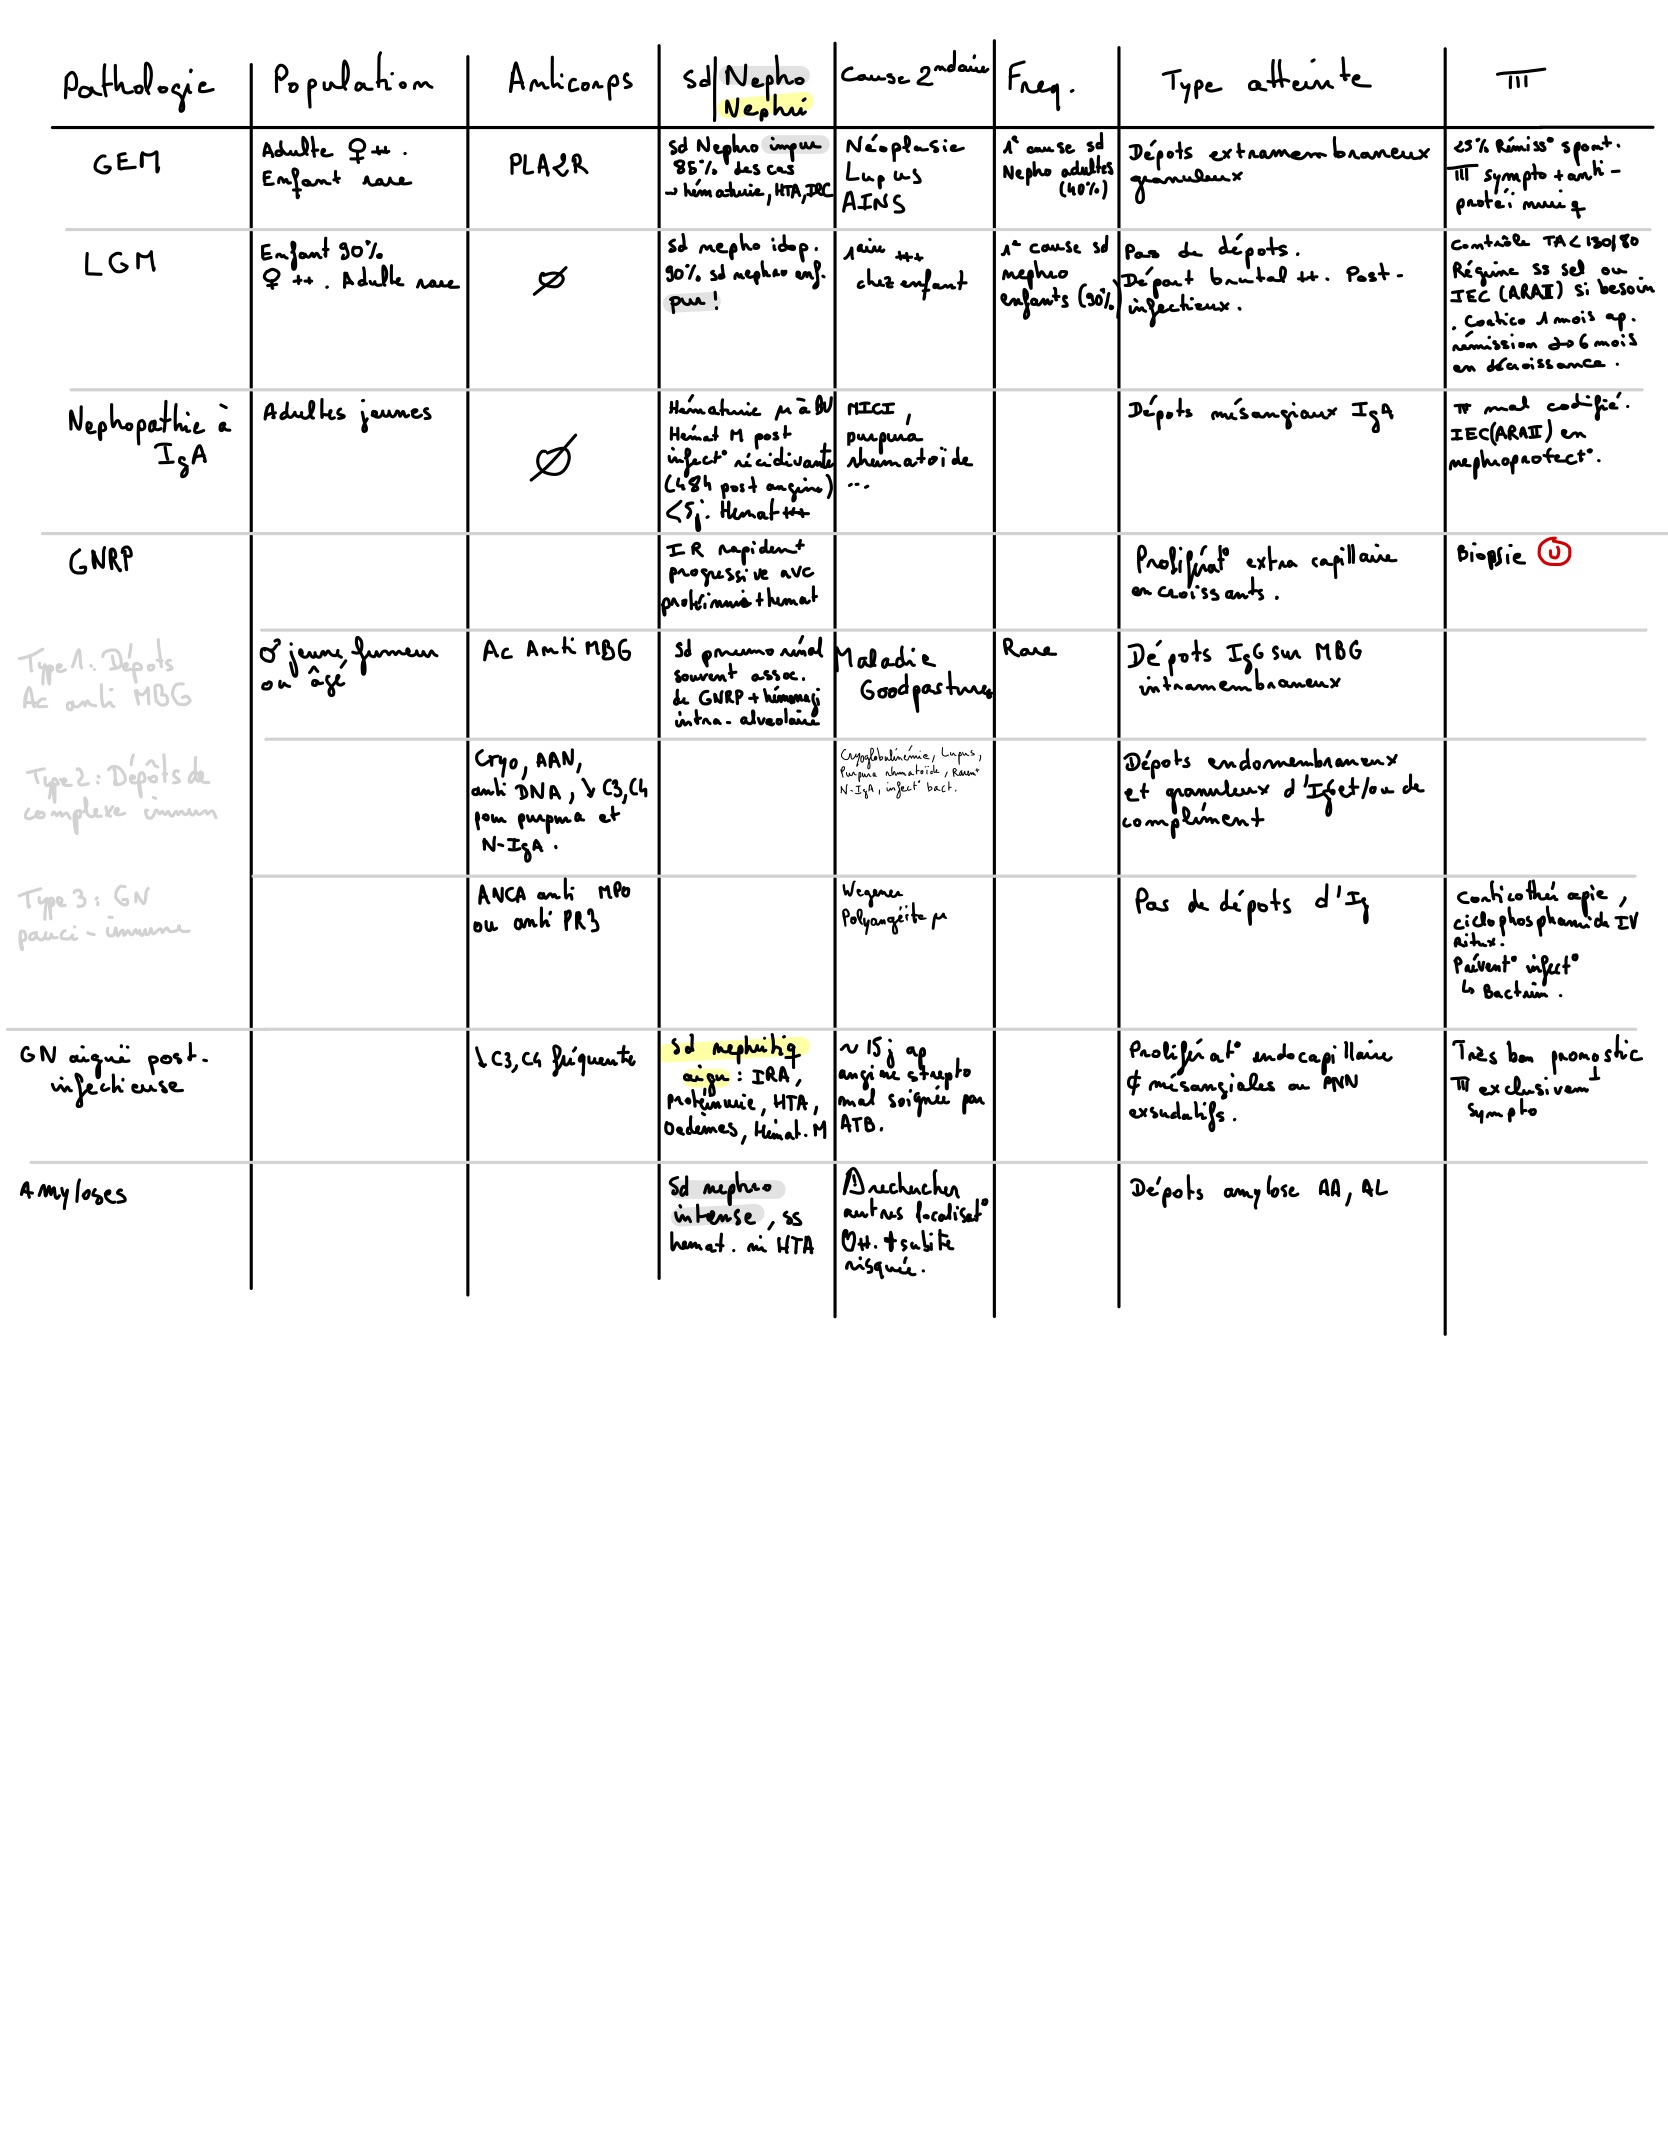 Pathologie
Population
Anticorps
Sd Nephro
Nephri
Cause 2ndaire
Freq.
Type atteinte
TTT
GEM
Adulte ♀ ++ .
Enfant rare
PLA2R
Sd Nephro impur
85% des cas
→ hématurie, HTA, IRC
Néoplasie
Lupus
AINS
1e cause sd
Nephro adultes
(40%)
Dépots extramembraneux
granuleux
25% Rémiss° spont.
TTT sympto + anti-
protéinuriq
LGM
Enfant 90%
♀ ++ . Adulte rare
∅
Sd nephro idop.
90% sd nephro enf.
pur !
1aire +++
chez enfant
1e cause sd
nephro
enfants (90%)
Pas de dépots.
Départ brutal ++. Post-
infectieux.
Contrôle TA < 130/80
Régime ss sel ou
IEC (ARAII) si besoin
. Cortico 1 mois ap.
rémission → 6 mois
en décroissance .
Nephopathie à
IgA
Adultes jeunes
∅
Hématurie µ à BU
Hémat M post
infect° récidivante
(48h post angine)
<5j. Hemat +++
MICI,
purpura
rhumatoïde
...
Dépots mésangiaux IgA
TTT mal codifié.
IEC(ARAII) en
nephroprotect°.
GNRP
IR rapidemt
progressive avc
protéinurie + hemat
Proliférat° extra capillaire
en croissants .
Biopsie U
Type 1 : Dépots
Ac anti MBG
♂ jeune, fumeur
ou âgé
Ac Anti MBG
Sd pneumo rénal
souvent assoc.
de GNRP + hémorragi
intra-alveolaire
Maladie
Goodpastures
Rare
Dépots IgG sur MBG
intramembraneux
Type 2 : Dépôts de
complexe immun
Cryo, AAN,
anti DNA, ↘ C3, C4
pour purpura et
N-IgA .
Cryoglobulinémie, Lupus,
Purpura rhumatoïde, Raremt
N-IgA, infect° bact.
Dépots endomembraneux
et granuleux d'Ig et/ou de
complément
Type 3 : GN
pauci-immune
ANCA anti MPO
ou anti PR3
Wegener
Polyangéite µ
Pas de dépots d'Ig
Corticothérapie,
ciclophosphamide IV
Ritux.
Prévent° infect°
↳ Bactrim .
GN aiguë post-
infectieuse
↓ C3, C4 fréquente
Sd nephritiq
aigu : IRA,
Protéinurie, HTA,
Oedèmes, Hémat. M
~ 15j ap
angine strepto
mal soignée par
ATB.
Proliférat° endocapillaire
¢ mésangiales ou PNN
exsudatifs .
Très bon pronostic
TTT exclusivemt
sympto
Amyloses
Sd nephro
intense, ss
hemat. ni HTA
⚠ rechercher
autres localisat°
♡++. † subite
risquée .
Dépots amylose AA, AL